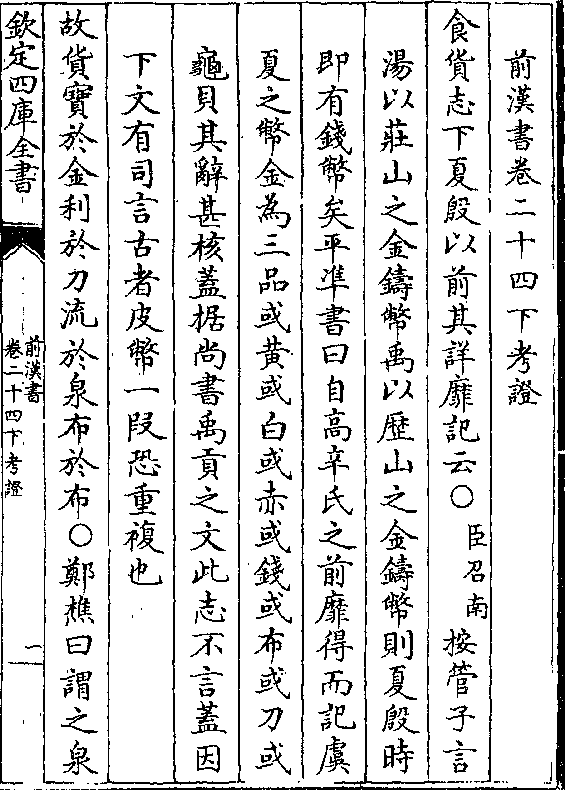 前漢書卷二十四下考證
食貨志下夏殷以前其詳靡記云〇臣召南按管子言
湯以莊山之金鑄幣禹以歷山之金鑄幣則夏殷時
即有錢幣矣平準書曰自高辛氏之前靡得而記虞
夏之幣金為三品或黄或白或赤或錢或布或刀或
龜貝其辭甚核蓋据尚書禹貢之文此志不言蓋因
下文有司言古者皮幣一段恐重複也
故貨寶於金利於刀流於泉布於布〇鄭樵曰謂之泉
欽定四庫全書
前漢書
卷二十四下考證
一